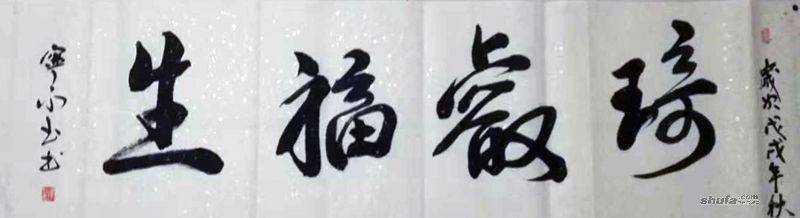 岁次戊戌年秋
琦叡福生
宁小玉书
shufa.com